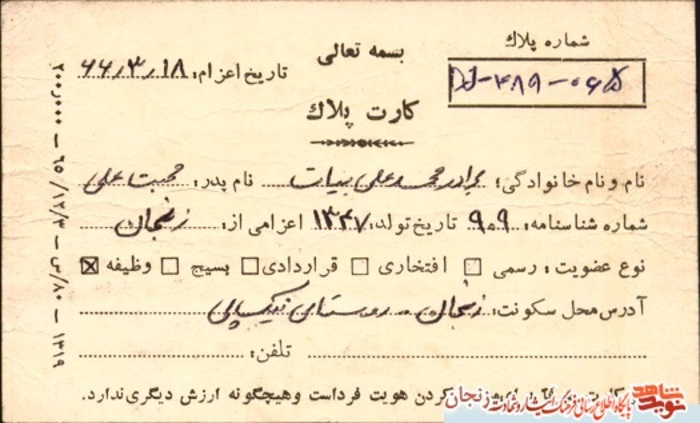 بسمه تعالی
شماره پلاك
DJ-489-065
تاریخ اعزام: ۶۶/۳/۱۸
کارت پلاك
نام و نام خانوادگی: برادر محمد علی بیات نام پدر: محبت علی
شماره شناسنامه: ۹۰۹ تاریخ تولد: ۱۳۴۷ اعزامی از: زنجان
نوع عضویت: رسمی □ افتخاری □ قراردادی □ بسیج □ وظیفه ☒
آدرس محل سکونت: زنجان - روستای
تلفن:
کردن هویت فرداست وهیچگونه ارزش دیگری ندارد.
۱۳۱۹ – ۳/۸۰ – ۶۵/۱۲/۳ – ۲۰۰,۰۰۰
نوید شاهد
پایگاه اطلاع رسانی فرهنگ ایثار و شهادت زنجان